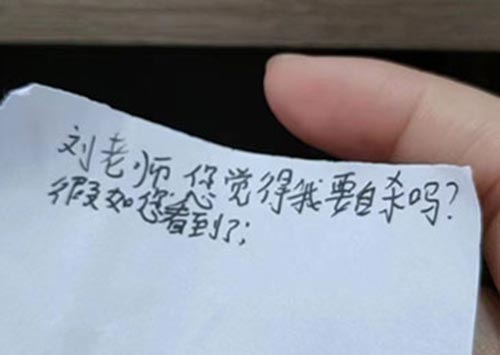 刘老师 您觉得我要自杀吗?
假如您看到了;